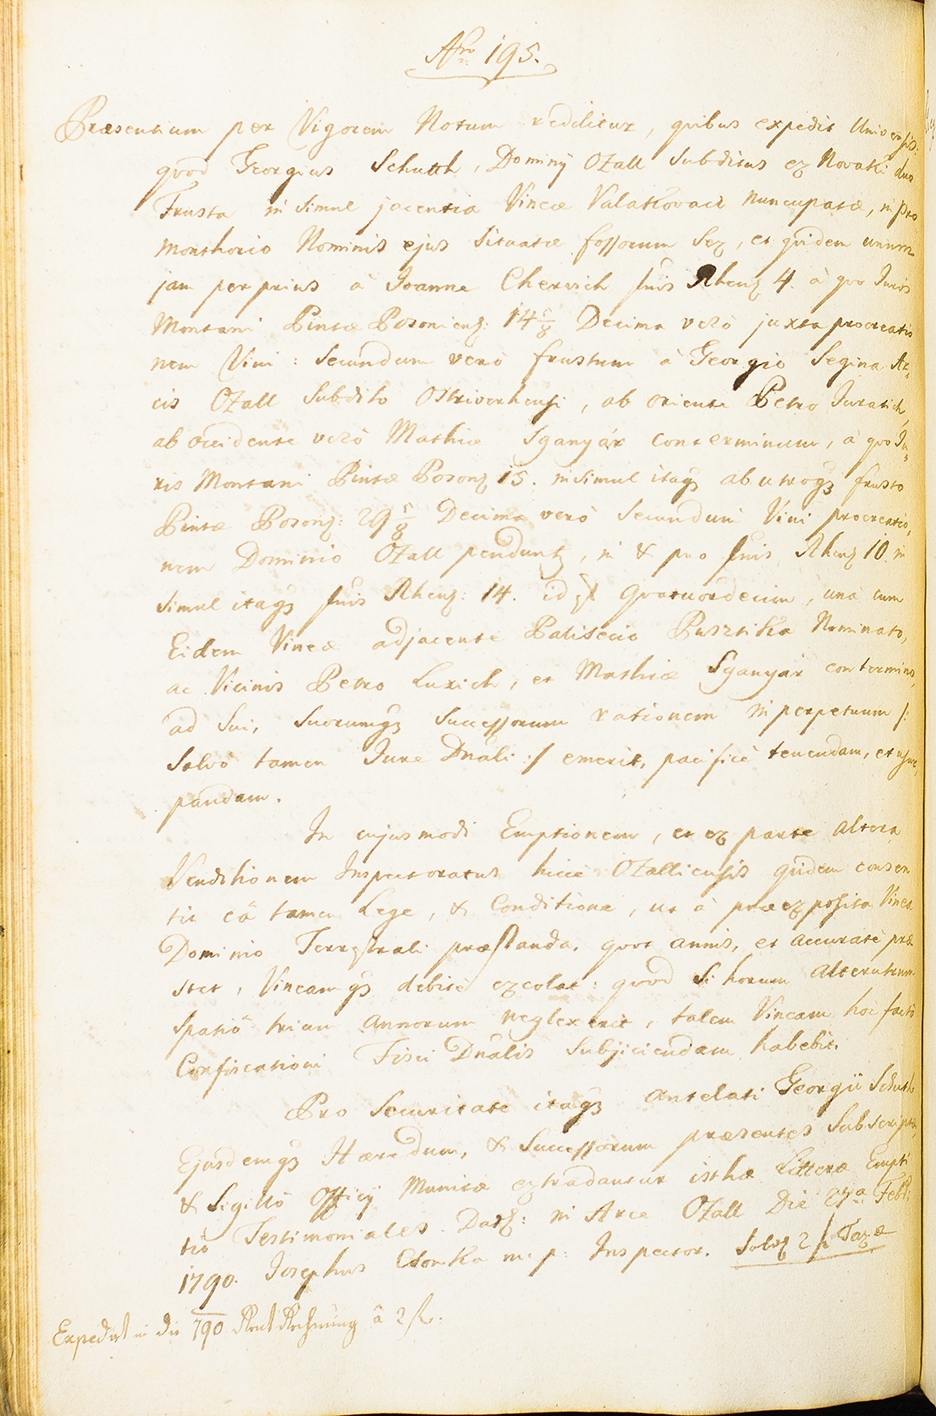 Nro 195.
Præsentium per Vigorem Notum redditur, quibus expedit Universis:
quod Georgius Schutth, Dominy Ozall Subditus ex Novaki duo
Frusta in simul jacentia Vineæ Valattovacz nuncupatæ, in pro
monthorio Nominis ejus situatæ fossorum Sex, et quidem unum
jam per prius à Joanne Chervich fnis Rhens 4. à quo Juris
Montani Pintæ Posoniens: 14 5/8 Decima verò juxta procreatio
nem Vini: Secundum verò frustum à Georgio Segina Ar,
cis Ozall Subdito Ostriverhensi, ab oriente Petro Juratich
ab occidente verò Mathiæ Sganyár conterminum, à quo Ju,
ris Montani Pintæ Posons 15. insimul itaq3 ab utroq3 frusto
Pintæ Posons: 29 5/8 Decima verò Secundum Vini procreatio,
nem Dominio Ozall penduntz, in & pro fnis Rhens 10. in
simul itaq3 fnis Rhens: 14. id est Quatuordecim, una cum
Eidem Vineæ adjacente Paliscio Pusztika Nominato,
ac Vicinis Petro Luxich, et Mathiæ Sganyár contermino,
ad Sui, Suorumq3 Successorum rationem in perpetuum /:
Salvo tamen Jure Dnali :/ emerit, pacificè tenendam, et usur,
pandam.
In cujusmodi Emptionem, et ex parte altera
Venditionem Inspectoratus hicce Ozalliensis quidem consen
tit cũ tamen Lege, & Conditione, ut à præexposita Vinea
Dominio Terrestrali præstanda, quot annis, et accuratè præ
stet, Vineamq3 debitè excolat: quod si horum alterutrum
spatiô trium annorum neglexerit, talem Vineam hoc facto
Confiscationi Fisci Dnalis Subjiciendam habebit.
Pro Securitate itaq3 antelati Georgii Schutth
Ejusdemq3 Hæredum, & Successorum præsentes Subscripto,
& Sigillô Officÿ Munitæ extradantur isthæ Litteræ Empti
tio Testimoniales. Datz: in Arce Ozall Die 27a Febr:
1790. Josephus Cronka m: p: Inspector. Solvz 2 f Taxæ
Expedirt in die 790 Rent Rechnung â 2 fr.